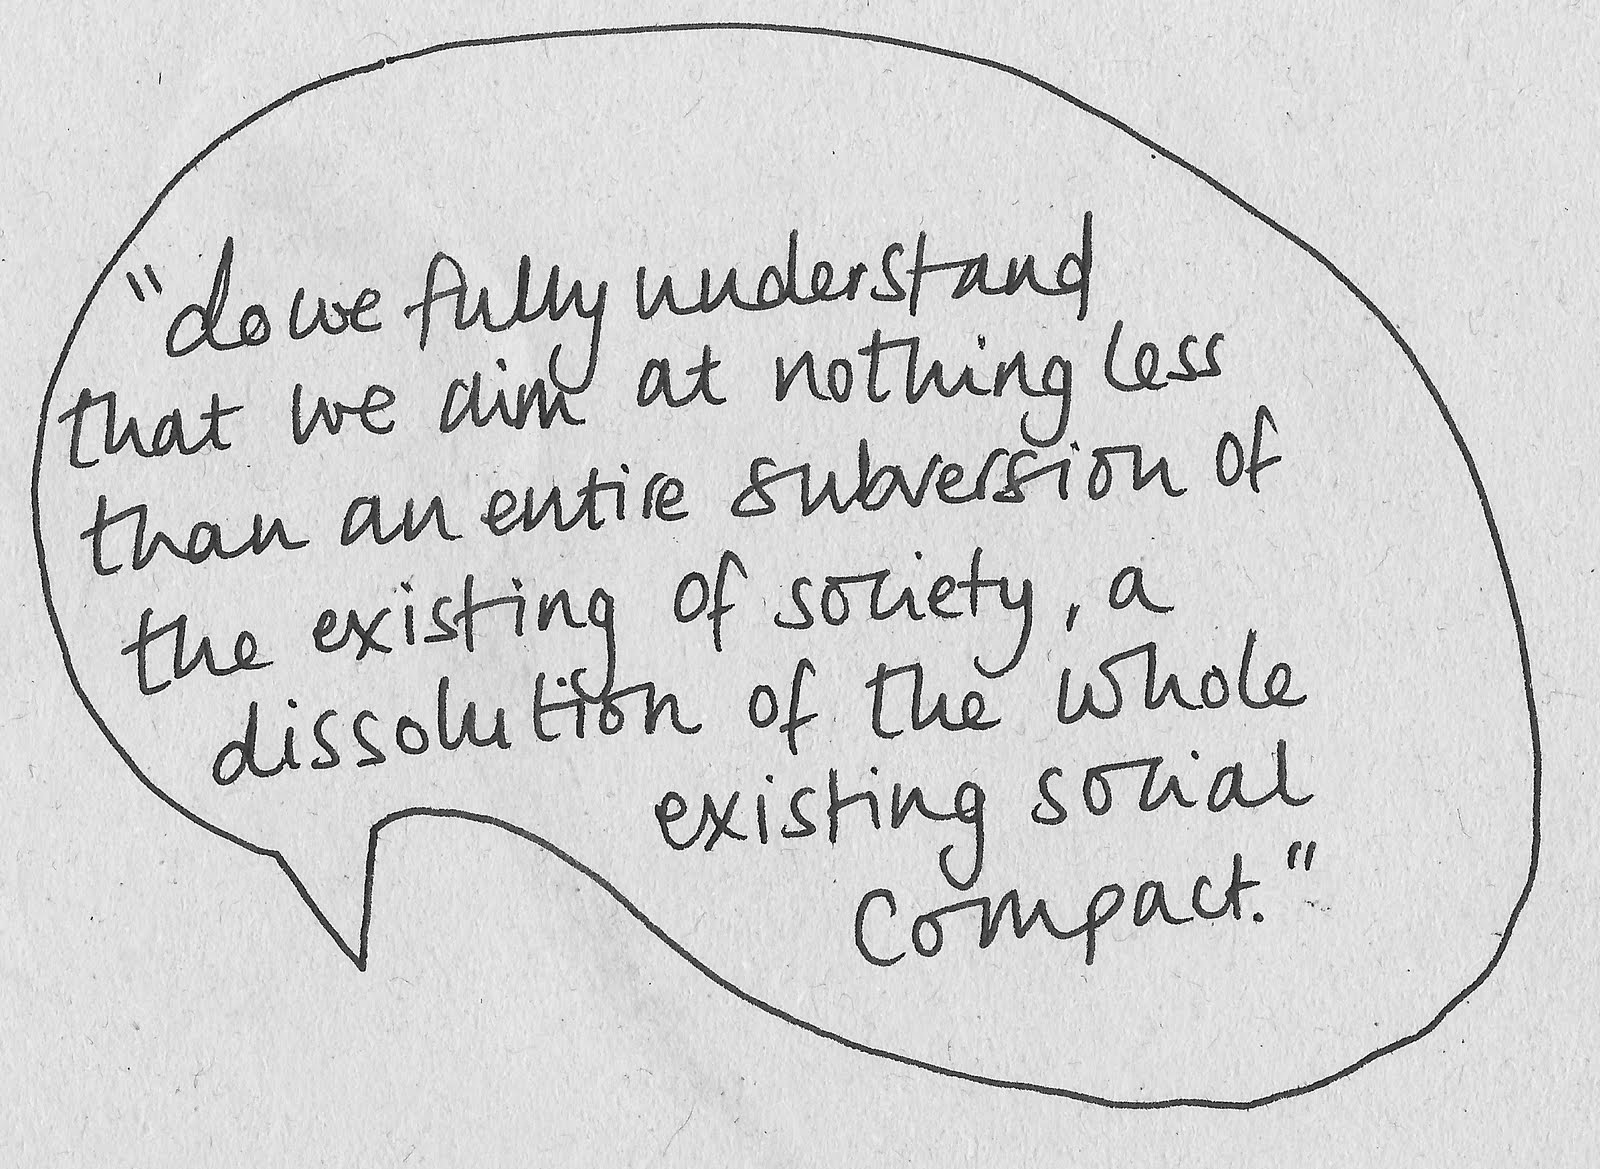 "do we fully understand
that we aim at nothing less
than an entire subversion of
the existing of society, a
dissolution of the whole
existing social
Compact."